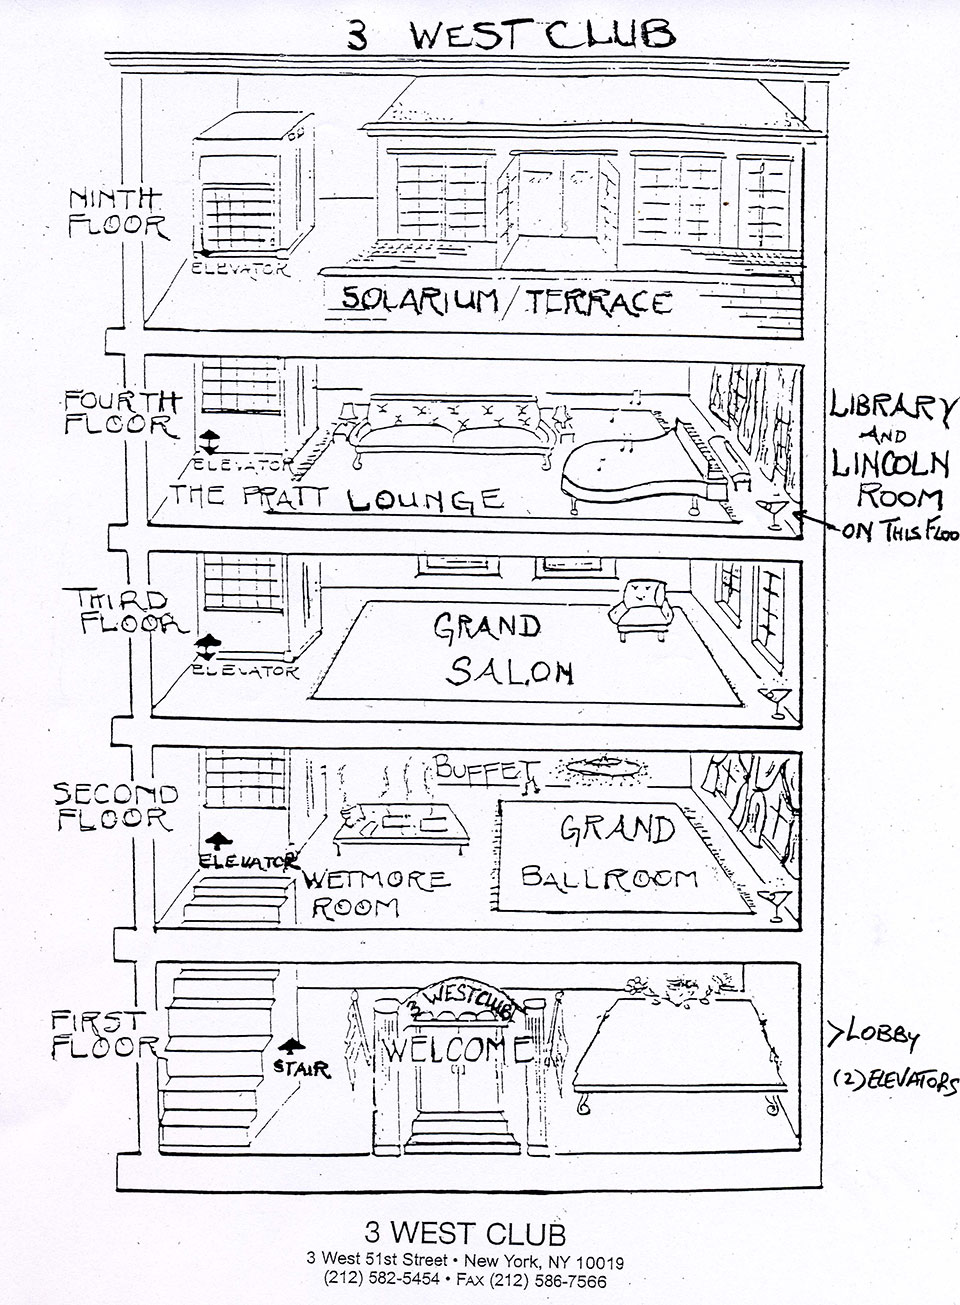 3 WEST CLUB
NINTH
FLOOR
ELEVATOR
SOLARIUM / TERRACE
FOURTH
FLOOR
ELEVATOR
THE PRATT LOUNGE
LIBRARY
AND
LINCOLN
ROOM
ON THIS FLOO
THIRD
FLOOR
ELEVATOR
GRAND
SALON
SECOND
FLOOR
ELEVATOR
BUFFET
WETMORE
ROOM
GRAND
BALLROOM
FIRST
FLOOR
STAIR
3 WEST CLUB
WELCOME
>LOBBY
(2) ELEVATORS
3 WEST CLUB
3 West 51st Street • New York, NY 10019
(212) 582-5454 • FAX (212) 586-7566